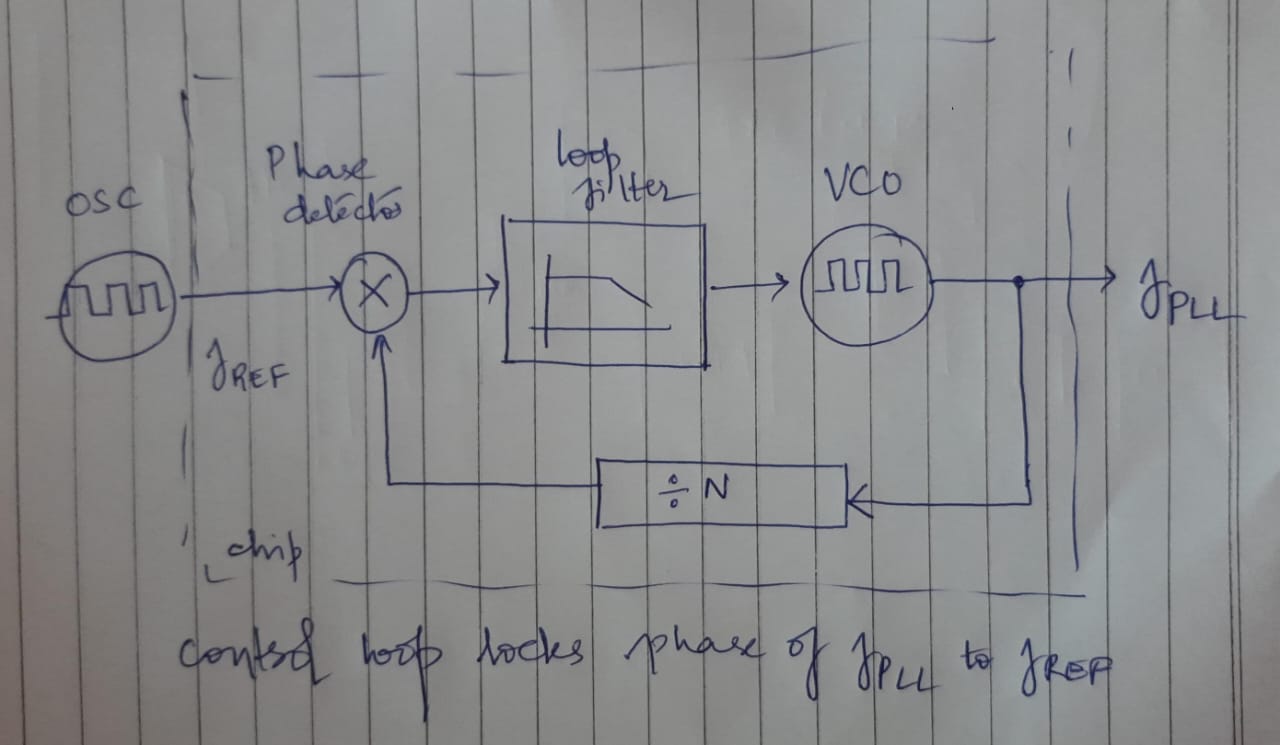 OSC
Phase
detector
loop
filter
VCO
fREF
fPLL
÷ N
chip
control loop locks phase of fPLL to fREF